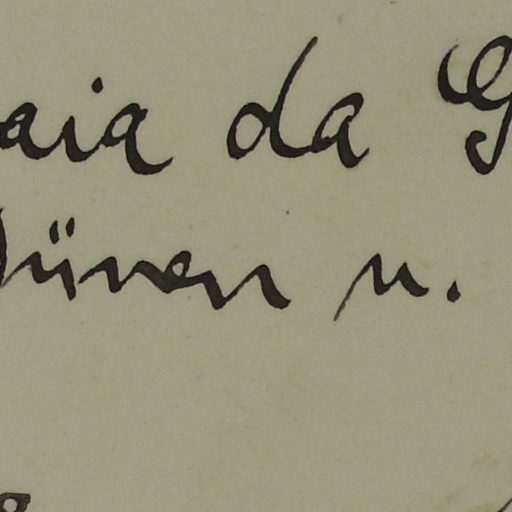 aia da G
Dünen u.